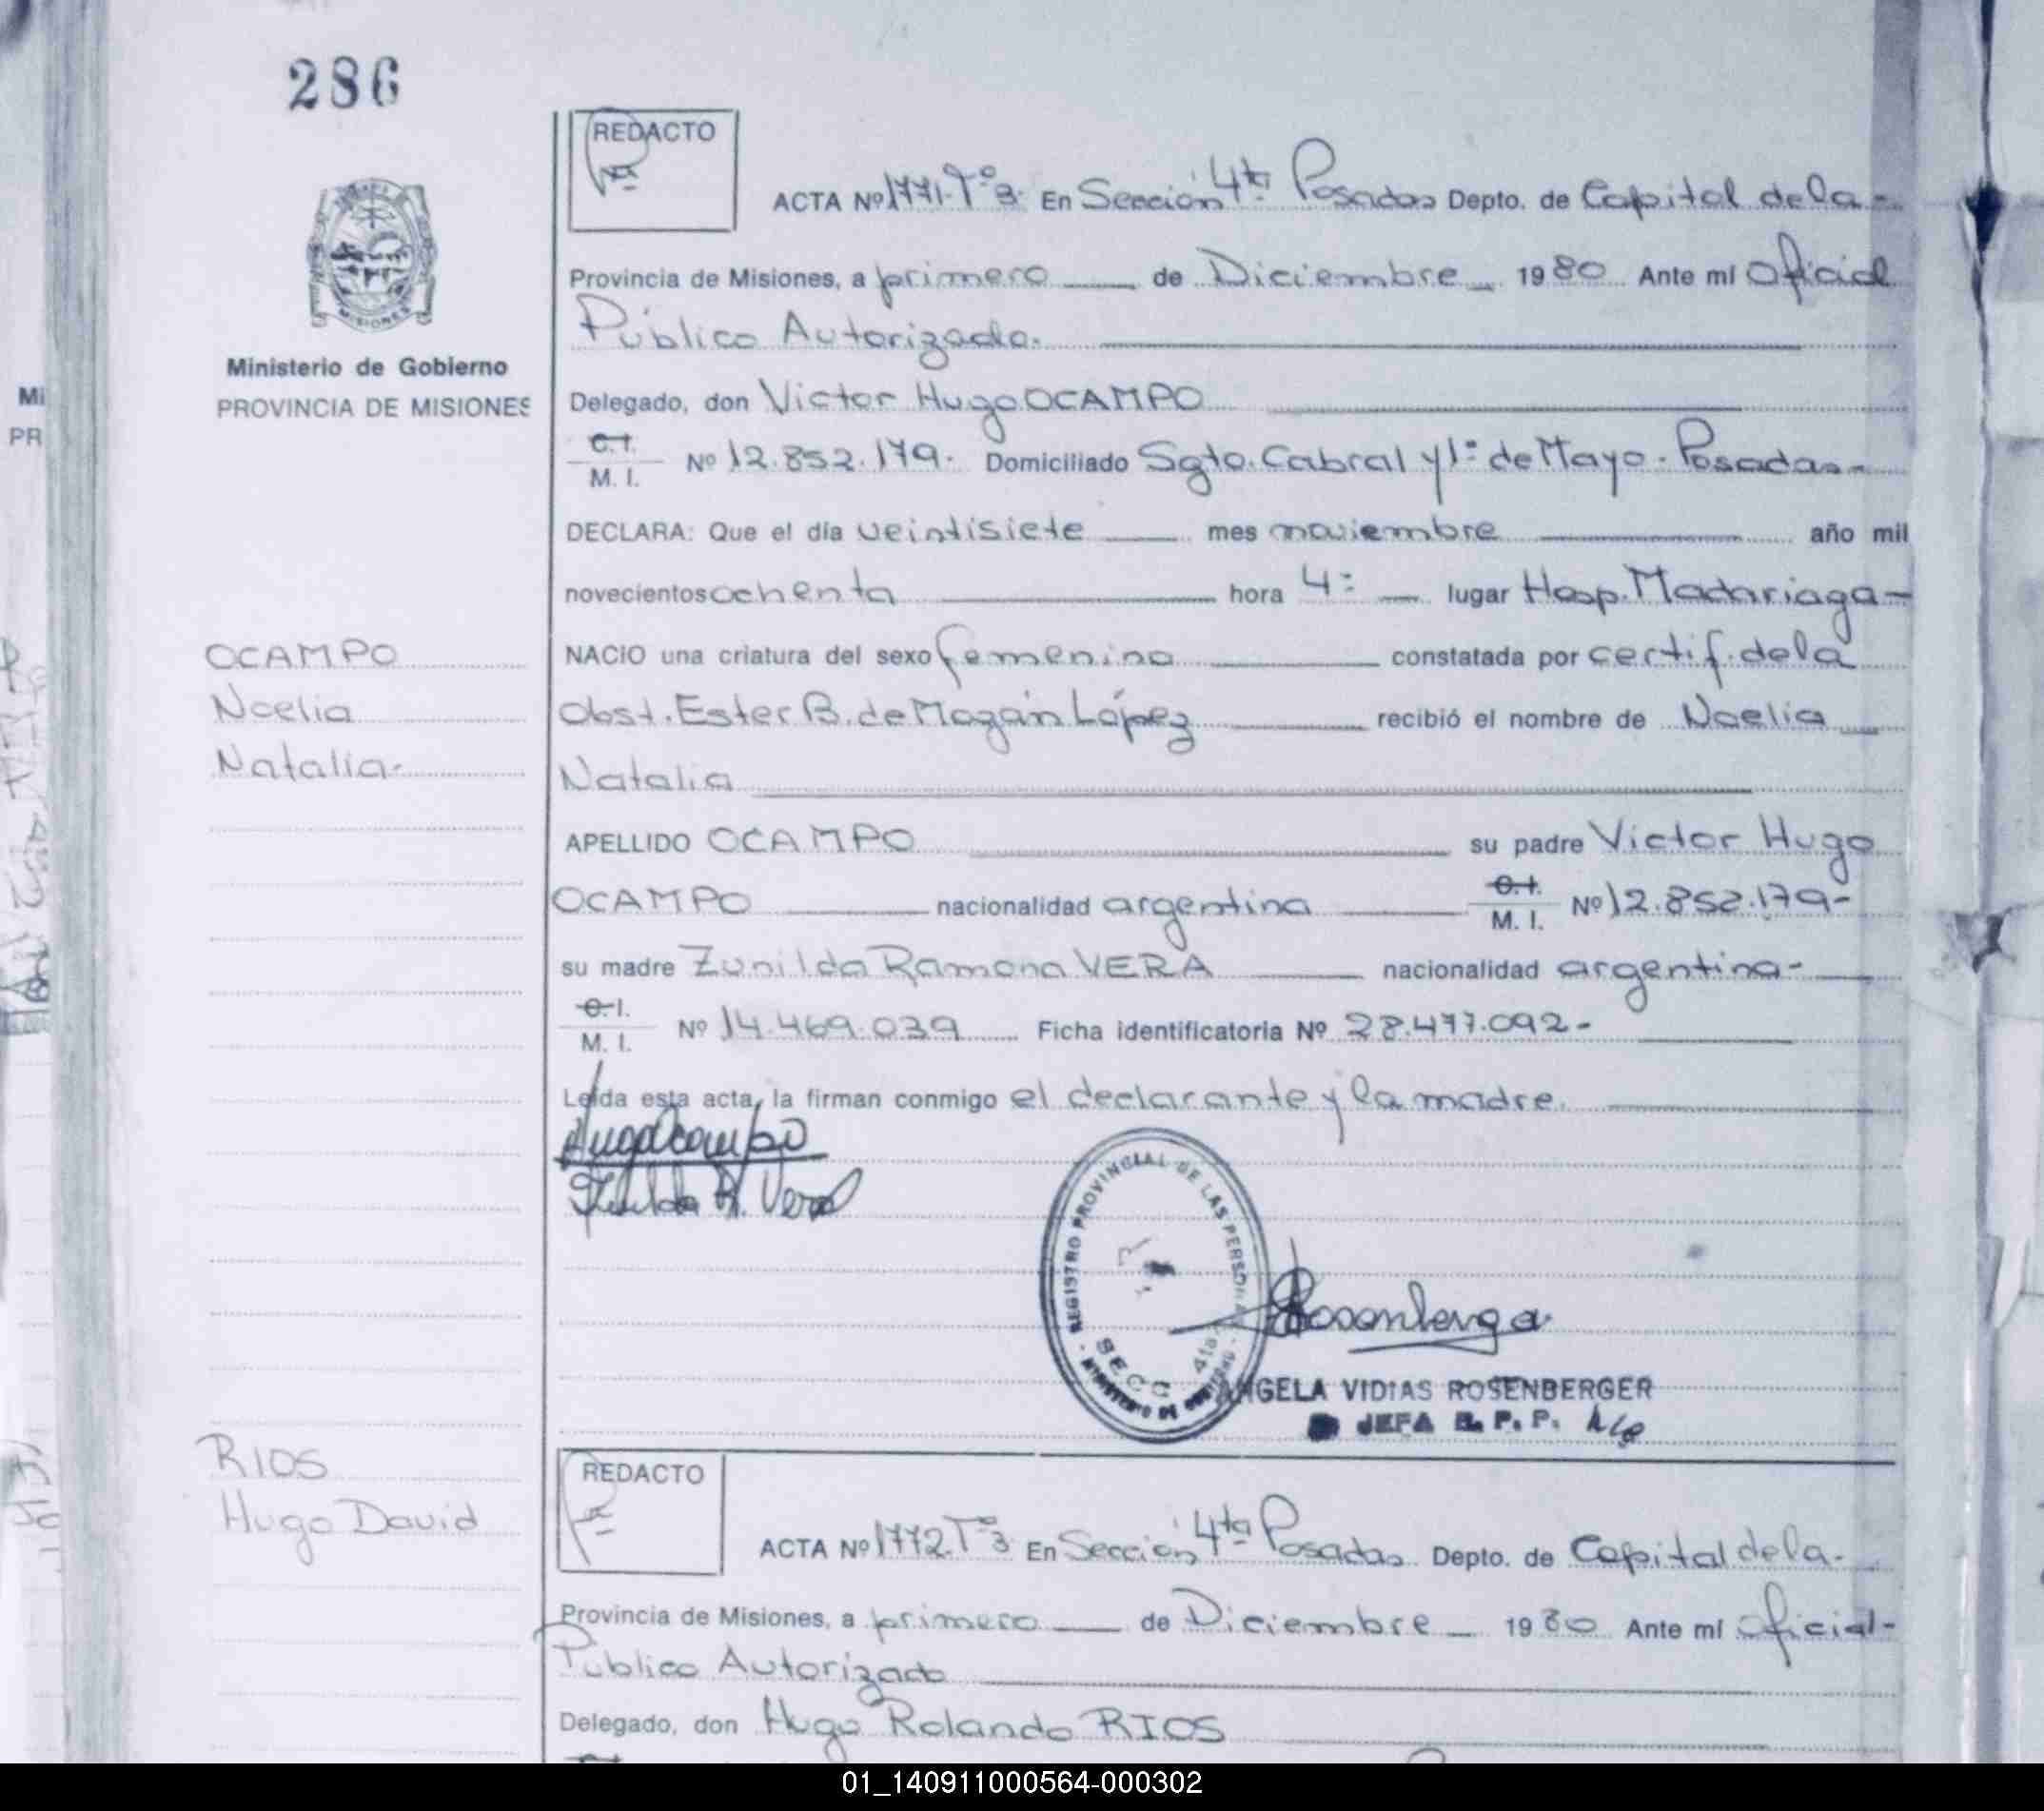 286
REDACTO
ACTA Nº 1771-Tº3- En Sección 4ta Posadas Depto. de Capital de la-
Provincia de Misiones, a primero de Diciembre 1980 Ante mí Oficial
Público Autorizado.
Ministerio de Gobierno
PROVINCIA DE MISIONES
Delegado, don Victor Hugo OCAMPO
C.I.
M. I. Nº 12.852.179. Domiciliado Sgto. Cabral y 1º de Mayo - Posadas-
DECLARA: Que el día veintisiete mes noviembre año mil
novecientos ochenta hora 4: lugar Hosp. Madariaga-
OCAMPO
NACIO una criatura del sexo femenino constatada por certif. de la
Noelia
Obst. Ester B. de Mazán López recibió el nombre de Noelia
Natalia-
Natalia
APELLIDO OCAMPO su padre Victor Hugo
OCAMPO nacionalidad argentina C.I.
M. I. Nº 12.852.179-
su madre Zunilda Ramona VERA nacionalidad argentina-
C.I.
M. I. Nº 14.469.039 Ficha identificatoria Nº 28.477.092-
Leída esta acta, la firman conmigo el declarante y la madre.
Hugo Ocampo
Zunilda R. Vera
REGISTRO PROVINCIAL DE LAS PERSONAS
SECC 4ta
Rosenberger
ANGELA VIDIAS ROSENBERGER
JEFA R. P. P.
RIOS
Hugo David
REDACTO
ACTA Nº 1772-Tº3 En Sección 4ta Posadas Depto. de Capital de la-
Provincia de Misiones, a primero de Diciembre 1980 Ante mí Oficial-
Público Autorizado
Delegado, don Hugo Rolando RIOS
01_140911000564-000302